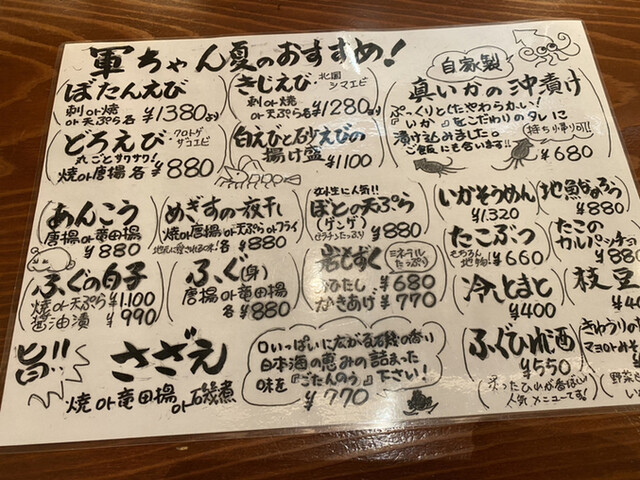 軍ちゃん夏のおすすめ!
ぼたんえび
刺or焼
or天ぷら各¥1380より
きじえび 北国シマエビ
刺or焼
or天ぷら各¥1280より
自家製
真いかの沖漬け
ぷっくりとしたやわらかい!
『いか』をこだわりのタレに
漬け込みました。
ご飯にも合います!!
持ち帰り可!!
¥680
どろえび クロトゲザコエビ
丸ごとサクサク!
焼or唐揚各¥880
白えびと砂えびの
揚げ盛
¥1100
あんこう
唐揚or竜田揚
¥880
めぎすの一夜干し
焼or唐揚or天ぷらorフライ
各¥880
女性に人気!!
ぼとの天ぷら
(ゲンゲ)
ゼラチンたっぷり
¥880
いかそうめん
¥1,320
地魚なめろう
¥880
たこぶつ
もちろん地物!
¥660
たこの
カルパッチョ
¥880
ふぐの白子
焼or天ぷら¥1,100
醤油漬 ¥990
ふぐ(身)
唐揚or竜田揚
各¥880
岩もずく
ミネラルたっぷり
おひたし ¥680
かきあげ ¥770
冷しとまと
¥400
枝豆
¥440
旨!!
さざえ
焼or竜田揚or磯煮
口いっぱいに広がる石磯の香り
日本海の恵みの詰まった
味を『ごたんのう』下さい!
¥770
ふぐひれ酒
¥550
炙ったひれが香ばしい
人気メニューです!
きゅうりの
マヨorみそ
野菜